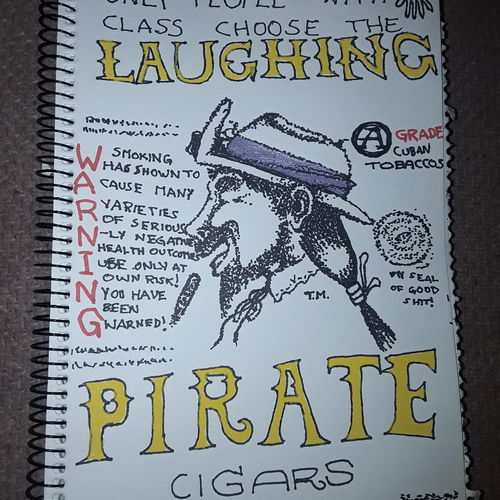 ONLY PEOPLE WITH
CLASS CHOOSE THE
LAUGHING
WARNING
SMOKING
HAS SHOWN TO
CAUSE MANY
VARIETIES
OF SERIOUS
-LY NEGATIVE
HEALTH OUTCOMES
USE ONLY AT
OWN RISK!
YOU HAVE
BEEN
WARNED!
A GRADE
CUBAN
TOBACCOS
MY SEAL
OF GOOD
SHIT!
T.M.
PIRATE
CIGARS